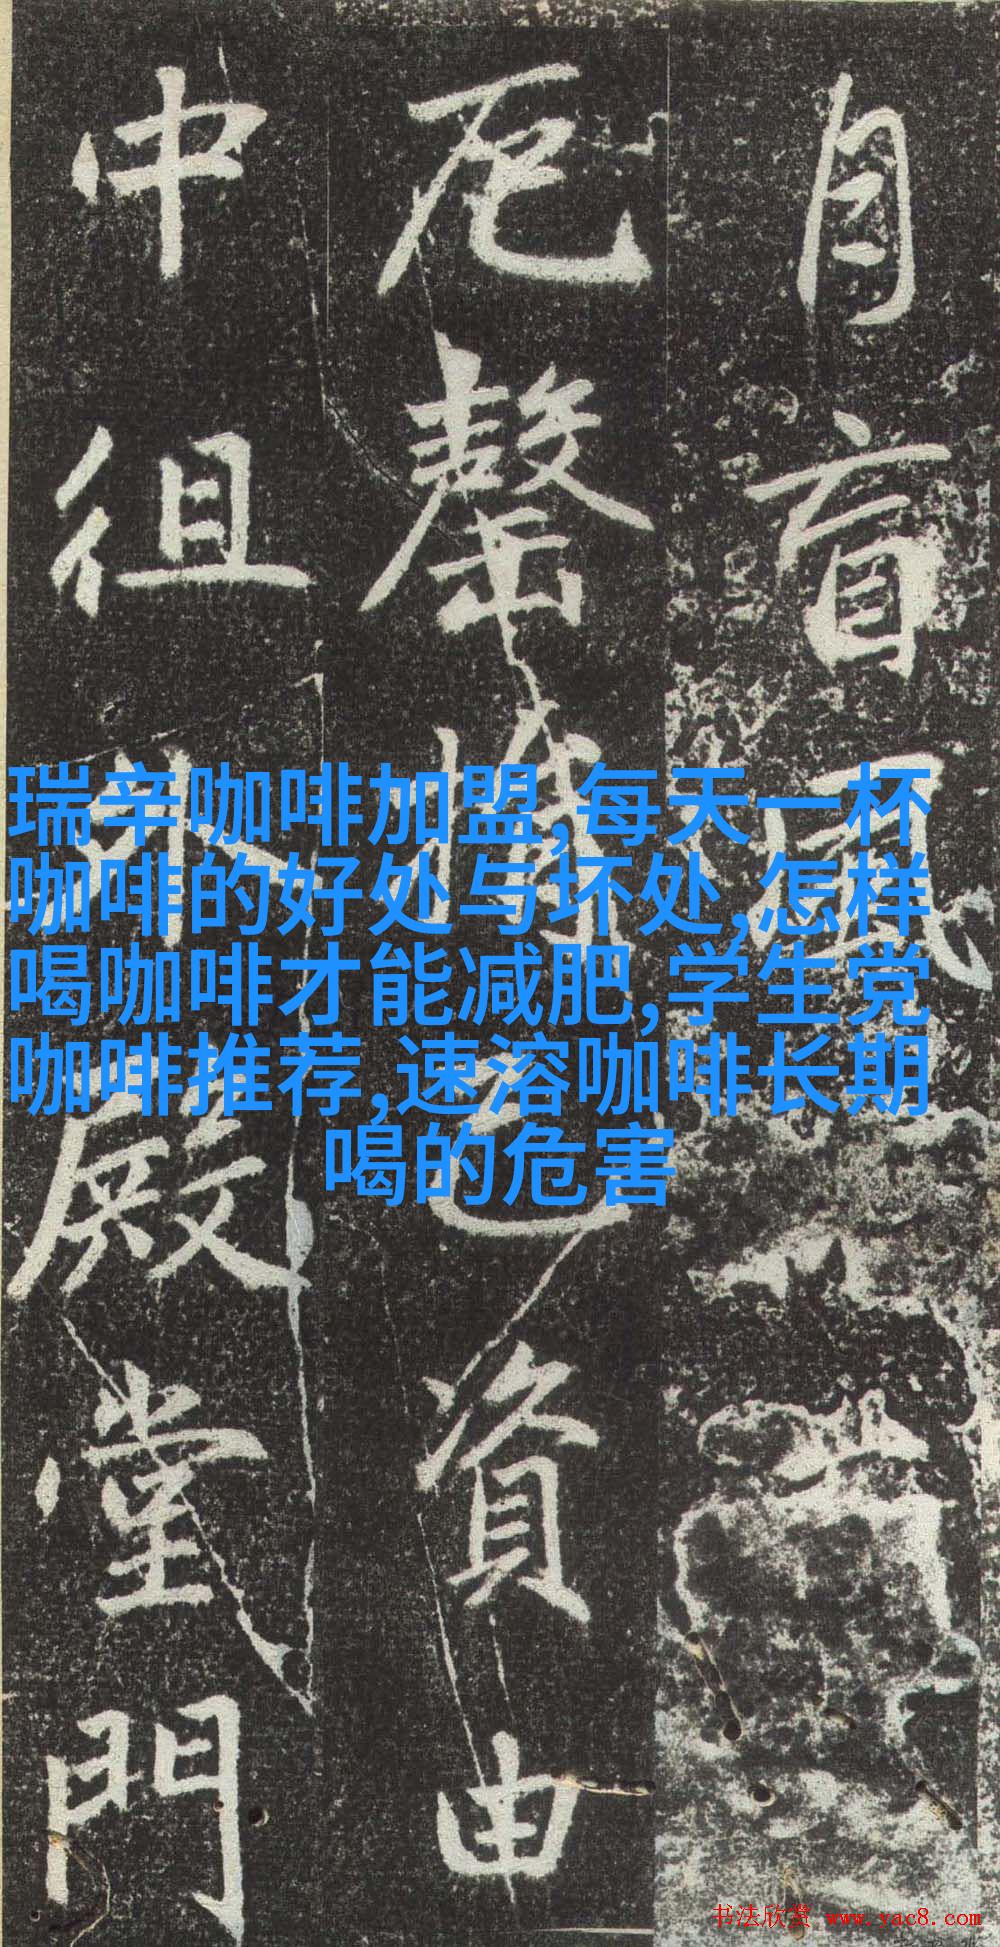 自盲風
厄罄已資由
中徂殿堂門
瑞辛咖啡加盟,每天一杯
咖啡的好处与坏处,怎样
喝咖啡才能减肥,学生党
咖啡推荐,速溶咖啡长期
喝的危害
书法欣赏 www.yac8.com